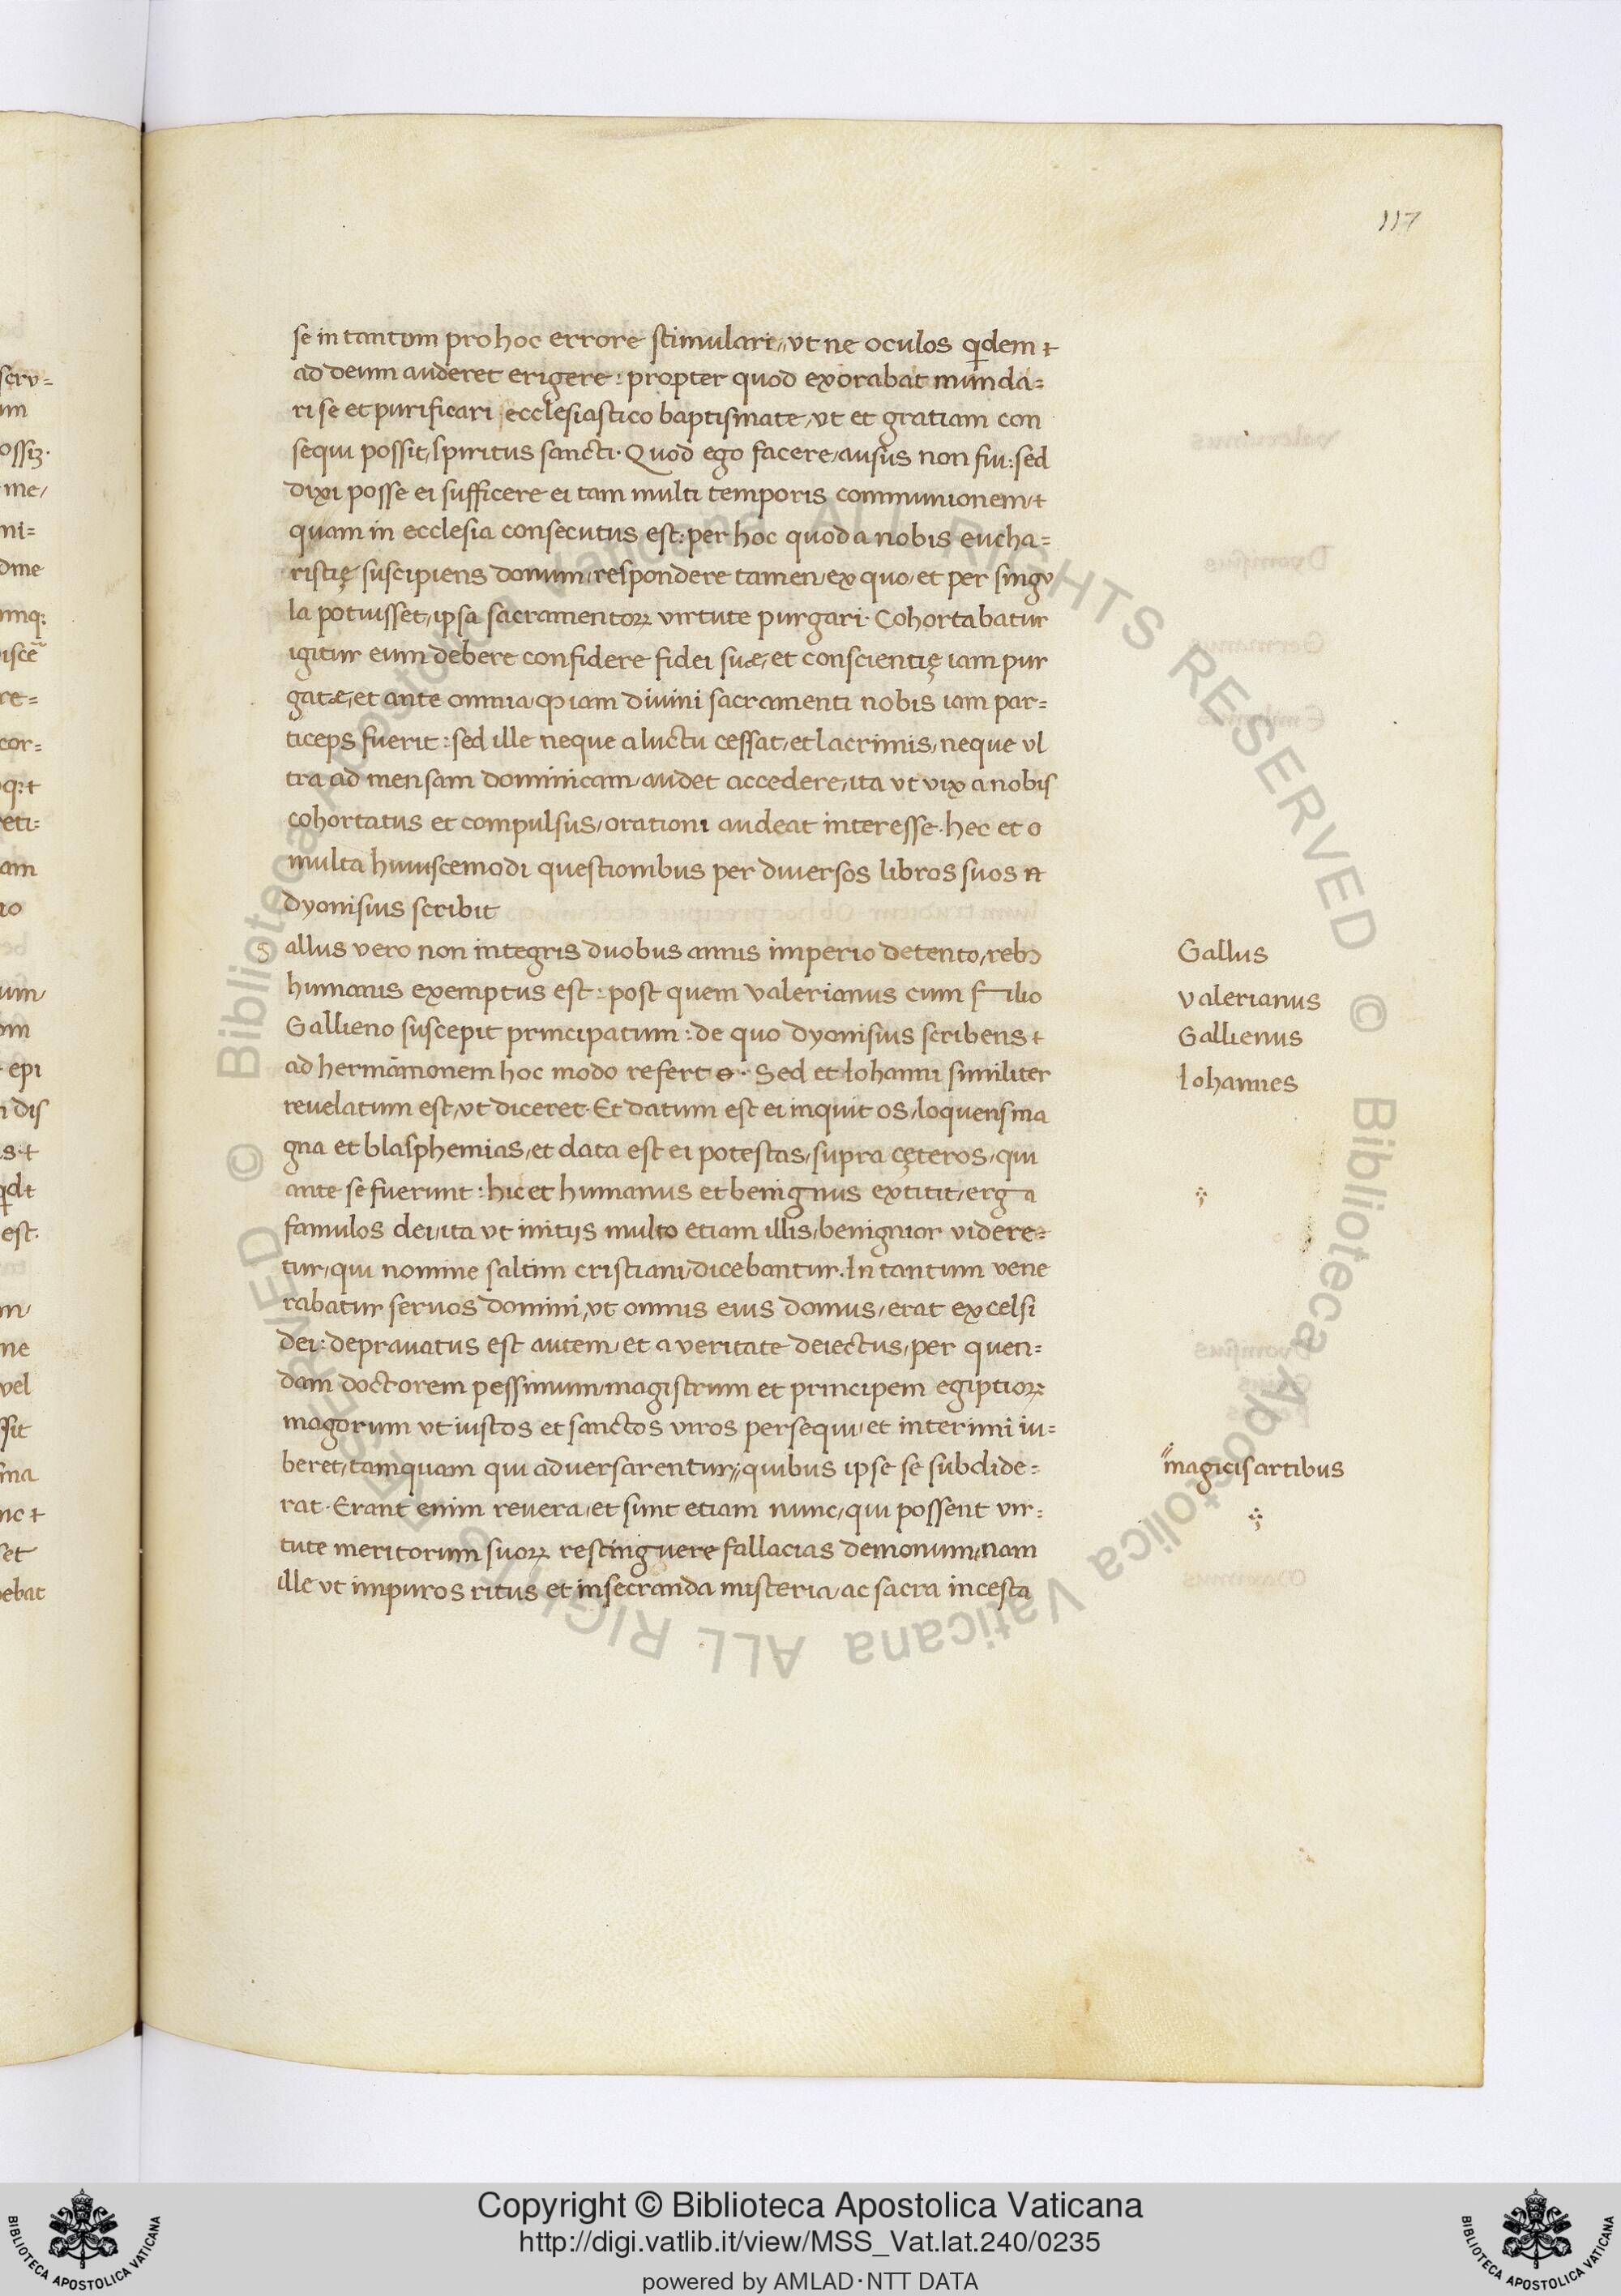 117
se in tantum pro hoc errore stimulari, ut ne oculos qidem
ad deum auderet erigere: propter quod exorabat munda=
ri se et purificari ecclesiastico baptismate, ut et gratiam con
sequi possit, spiritus sancti. Quod ego facere, ausus non fui: sed
dixi posse ei sufficere ei tam multi temporis communionem,
quam in ecclesia consecutus est: per hoc quod a nobis eucha=
ristię suscipiens donum, respondere tamen, ex quo, et per singu
la potuisset, ipsa sacramentoꝝ virtute purgari. Cohortabatur
igitur eum debere confidere fidei suæ, et conscientię iam pur
gatæ, et ante omnia, ꝙ iam divini sacramenti nobis iam par=
ticeps fuerit: sed ille neque a luctu cessat, et lacrimis, neque ul
tra ad mensam dominicam, audet accedere, ita ut vix a nobis
cohortatus et compulsus, orationi audeat interesse. hec et
multa huiuscemodi questionibus per diversos libros suos
dyonisius scribit
Gallus vero non integris duobus annis imperio detento, reb
humanis exemptus est: post quem valerianus cum filio
Gallieno suscepit principatum: de quo dyonisius scribens
ad hermāmonem hoc modo refert. Sed et Iohanni similiter
revelatum est, ut diceret. Et datum est ei inquit os, loquens ma
gna et blasphemias, et data est ei potestas, supra cęteros, qui
ante se fuerunt: hic et humanus et benignus extitit, erga
famulos dei, ita ut initijs multo etiam illis, benignior videre=
tur, qui nomine saltim cristiani, dicebantur. In tantum vene
rabatur servos domini, ut omnis eius domus, erat excelsi
dei: depravatus est autem, et a veritate deiectus, per quen=
dam doctorem pessimum, magistrum et principem egiptioꝝ
magorum ut iustos et sanctos viros persequi, et interimi iu=
beret, tamquam qui adversarentur, quibus ipse se subdide=
rat. Erant enim revera, et sunt etiam nunc, qui possent vir=
tute meritorum suoꝝ restinguere fallacias demonum, nam
ille ut impuros ritus et insecranda misteria, ac sacra incesta
Gallus
valerianus
Gallienus
Iohannes
magicis artibus
© Biblioteca Apostolica Vaticana ALL RIGHTS RESERVED
© Biblioteca Apostolica Vaticana ALL RIGHTS RESERVED
BIBLIOTECA APOSTOLICA VATICANA
Copyright © Biblioteca Apostolica Vaticana
http://digi.vatlib.it/view/MSS_Vat.lat.240/0235
powered by AMLAD·NTT DATA
BIBLIOTECA APOSTOLICA VATICANA